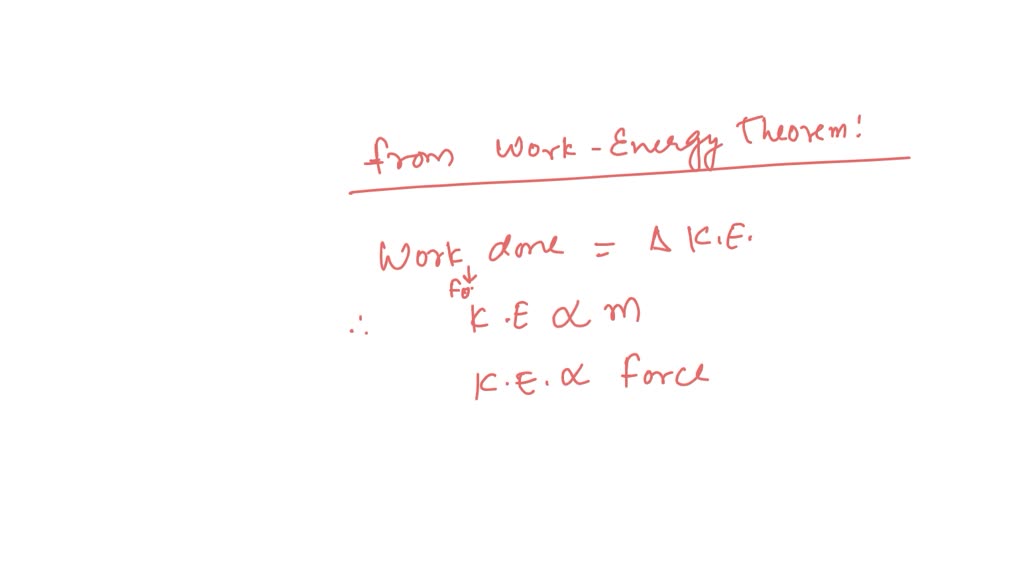 from Work-Energy Theorem:
Work done = Δ K.E.
∴ K.E ∝ m
K.E. ∝ force